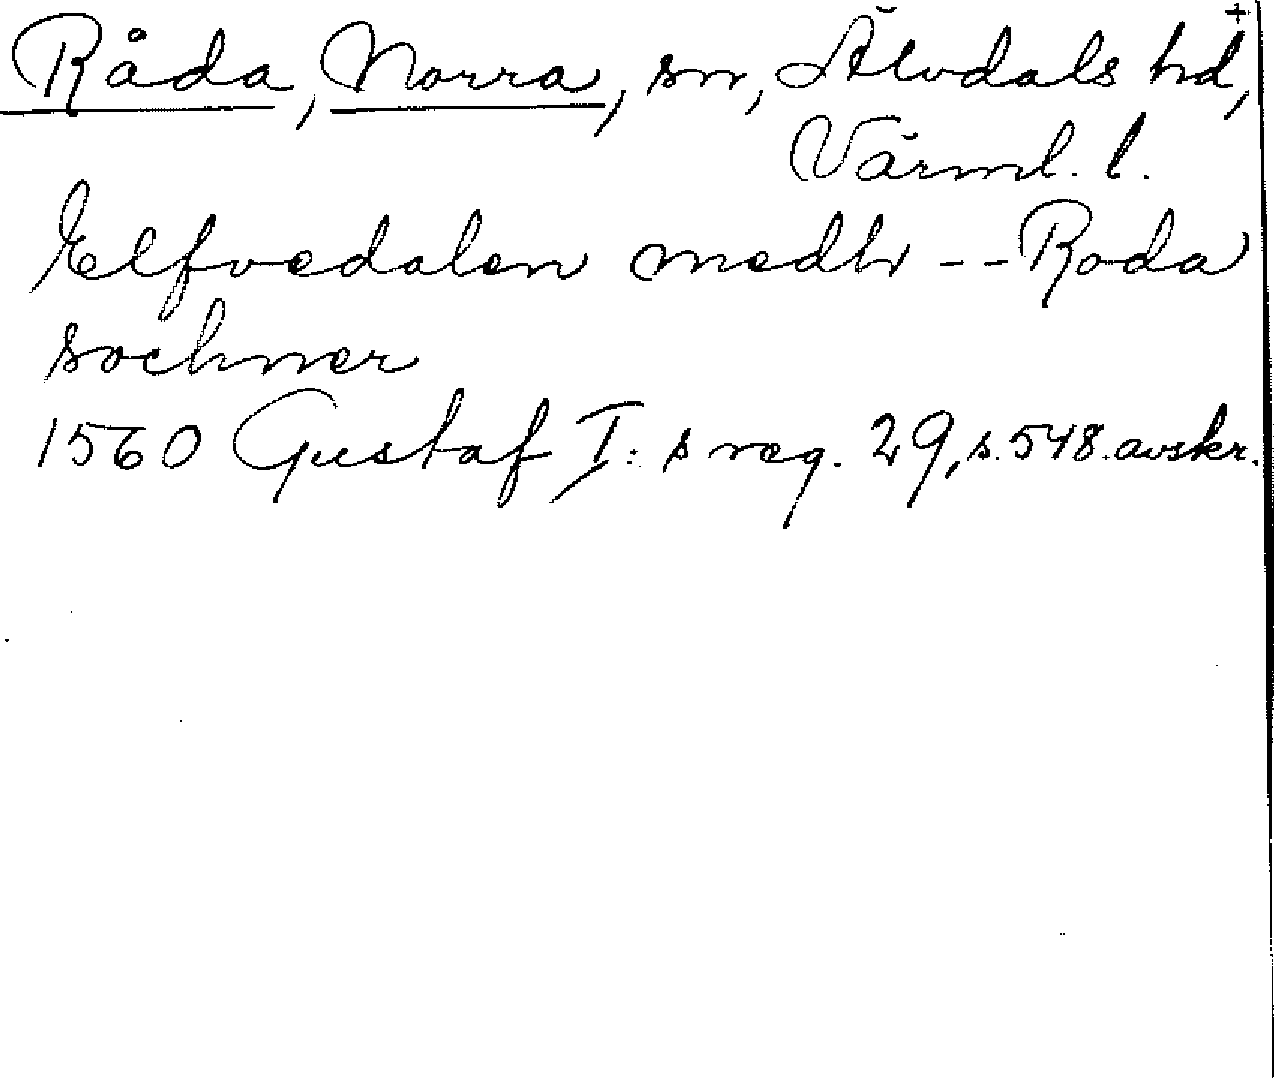 Råda, Norra, sn, Älvdals hd, +
Värml. l.
Elfvedalen medh -- Roda
sochner
1560 Gustaf I:s reg. 29, s. 548. avskr.